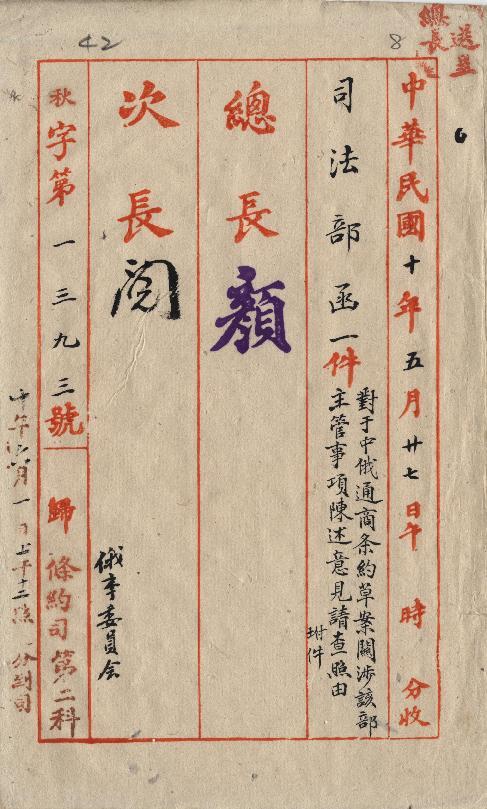 42
8
送呈
總長
中華民國十年五月廿七日午 時 分收
司法部函一件
對于中俄通商条約草案關涉該部
主管事項陳述意見請查照由
坿件
總長 顏
次長 閱
俄事委員会
秋字第一三九三號
歸條約司第二科
十年六月一日上午十二点 分到司